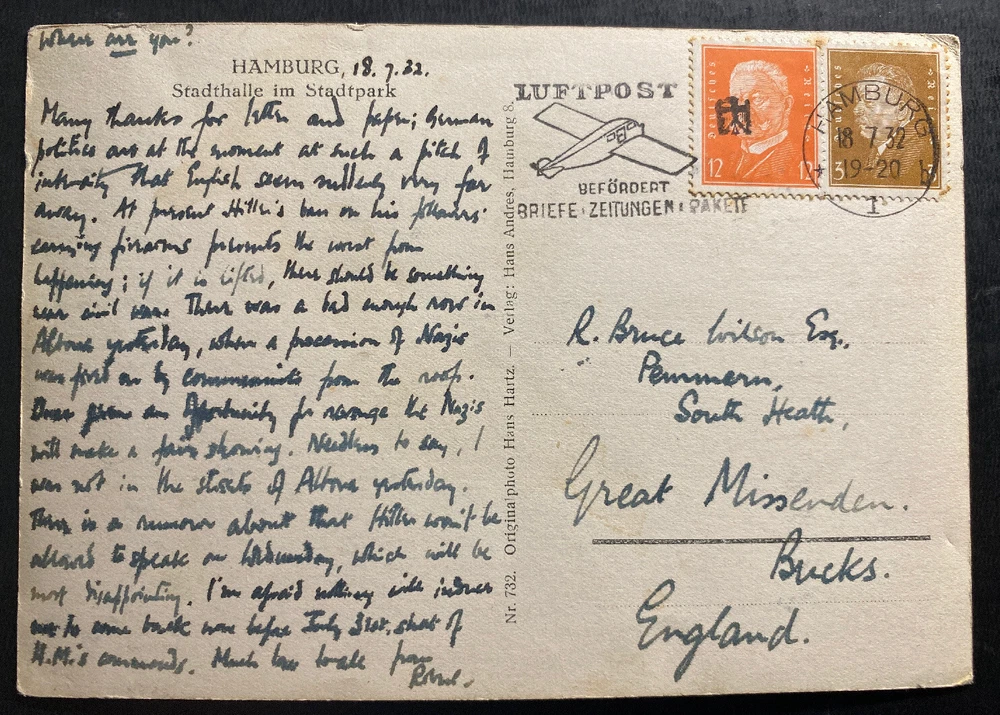 Where are you?
HAMBURG, 18.7.32.
Stadthalle im Stadtpark
Many thanks for letter and paper; German
politics are at the moment at such a pitch of
intensity that English seem suddenly very far
away. At present Hitler's ban on his followers'
carrying firearms prevents the worst from
happening; if it is lifted, there should be something
near civil war. There was a bad enough row in
Altona yesterday, when a procession of Nazis
was fired on by communists from the roofs.
given an opportunity for revenge the Nazis
will make a fair showing. Needless to say, I
was not in the streets of Altona yesterday.
There is a rumour about that Hitler won't be
allowed to speak on Wednesday, which will be
most disappointing. I'm afraid nothing will induce
me to come back before July 31st, short of
H.M.'s commands. Much love to all from
Nr. 732. Originalphoto Hans Hartz. — Verlag: Hans Andres, Hamburg 8.
LUFTPOST
BEFÖRDERT
BRIEFE·ZEITUNGEN·PAKETE
Deutsches Reich
12 12
Deutsches Reich
3
HAMBURG
18 7.32
19-20
1
R. Bruce Wilson Esq.,
Pemmern,
South Heath,
Great Missenden.
Bucks.
England.